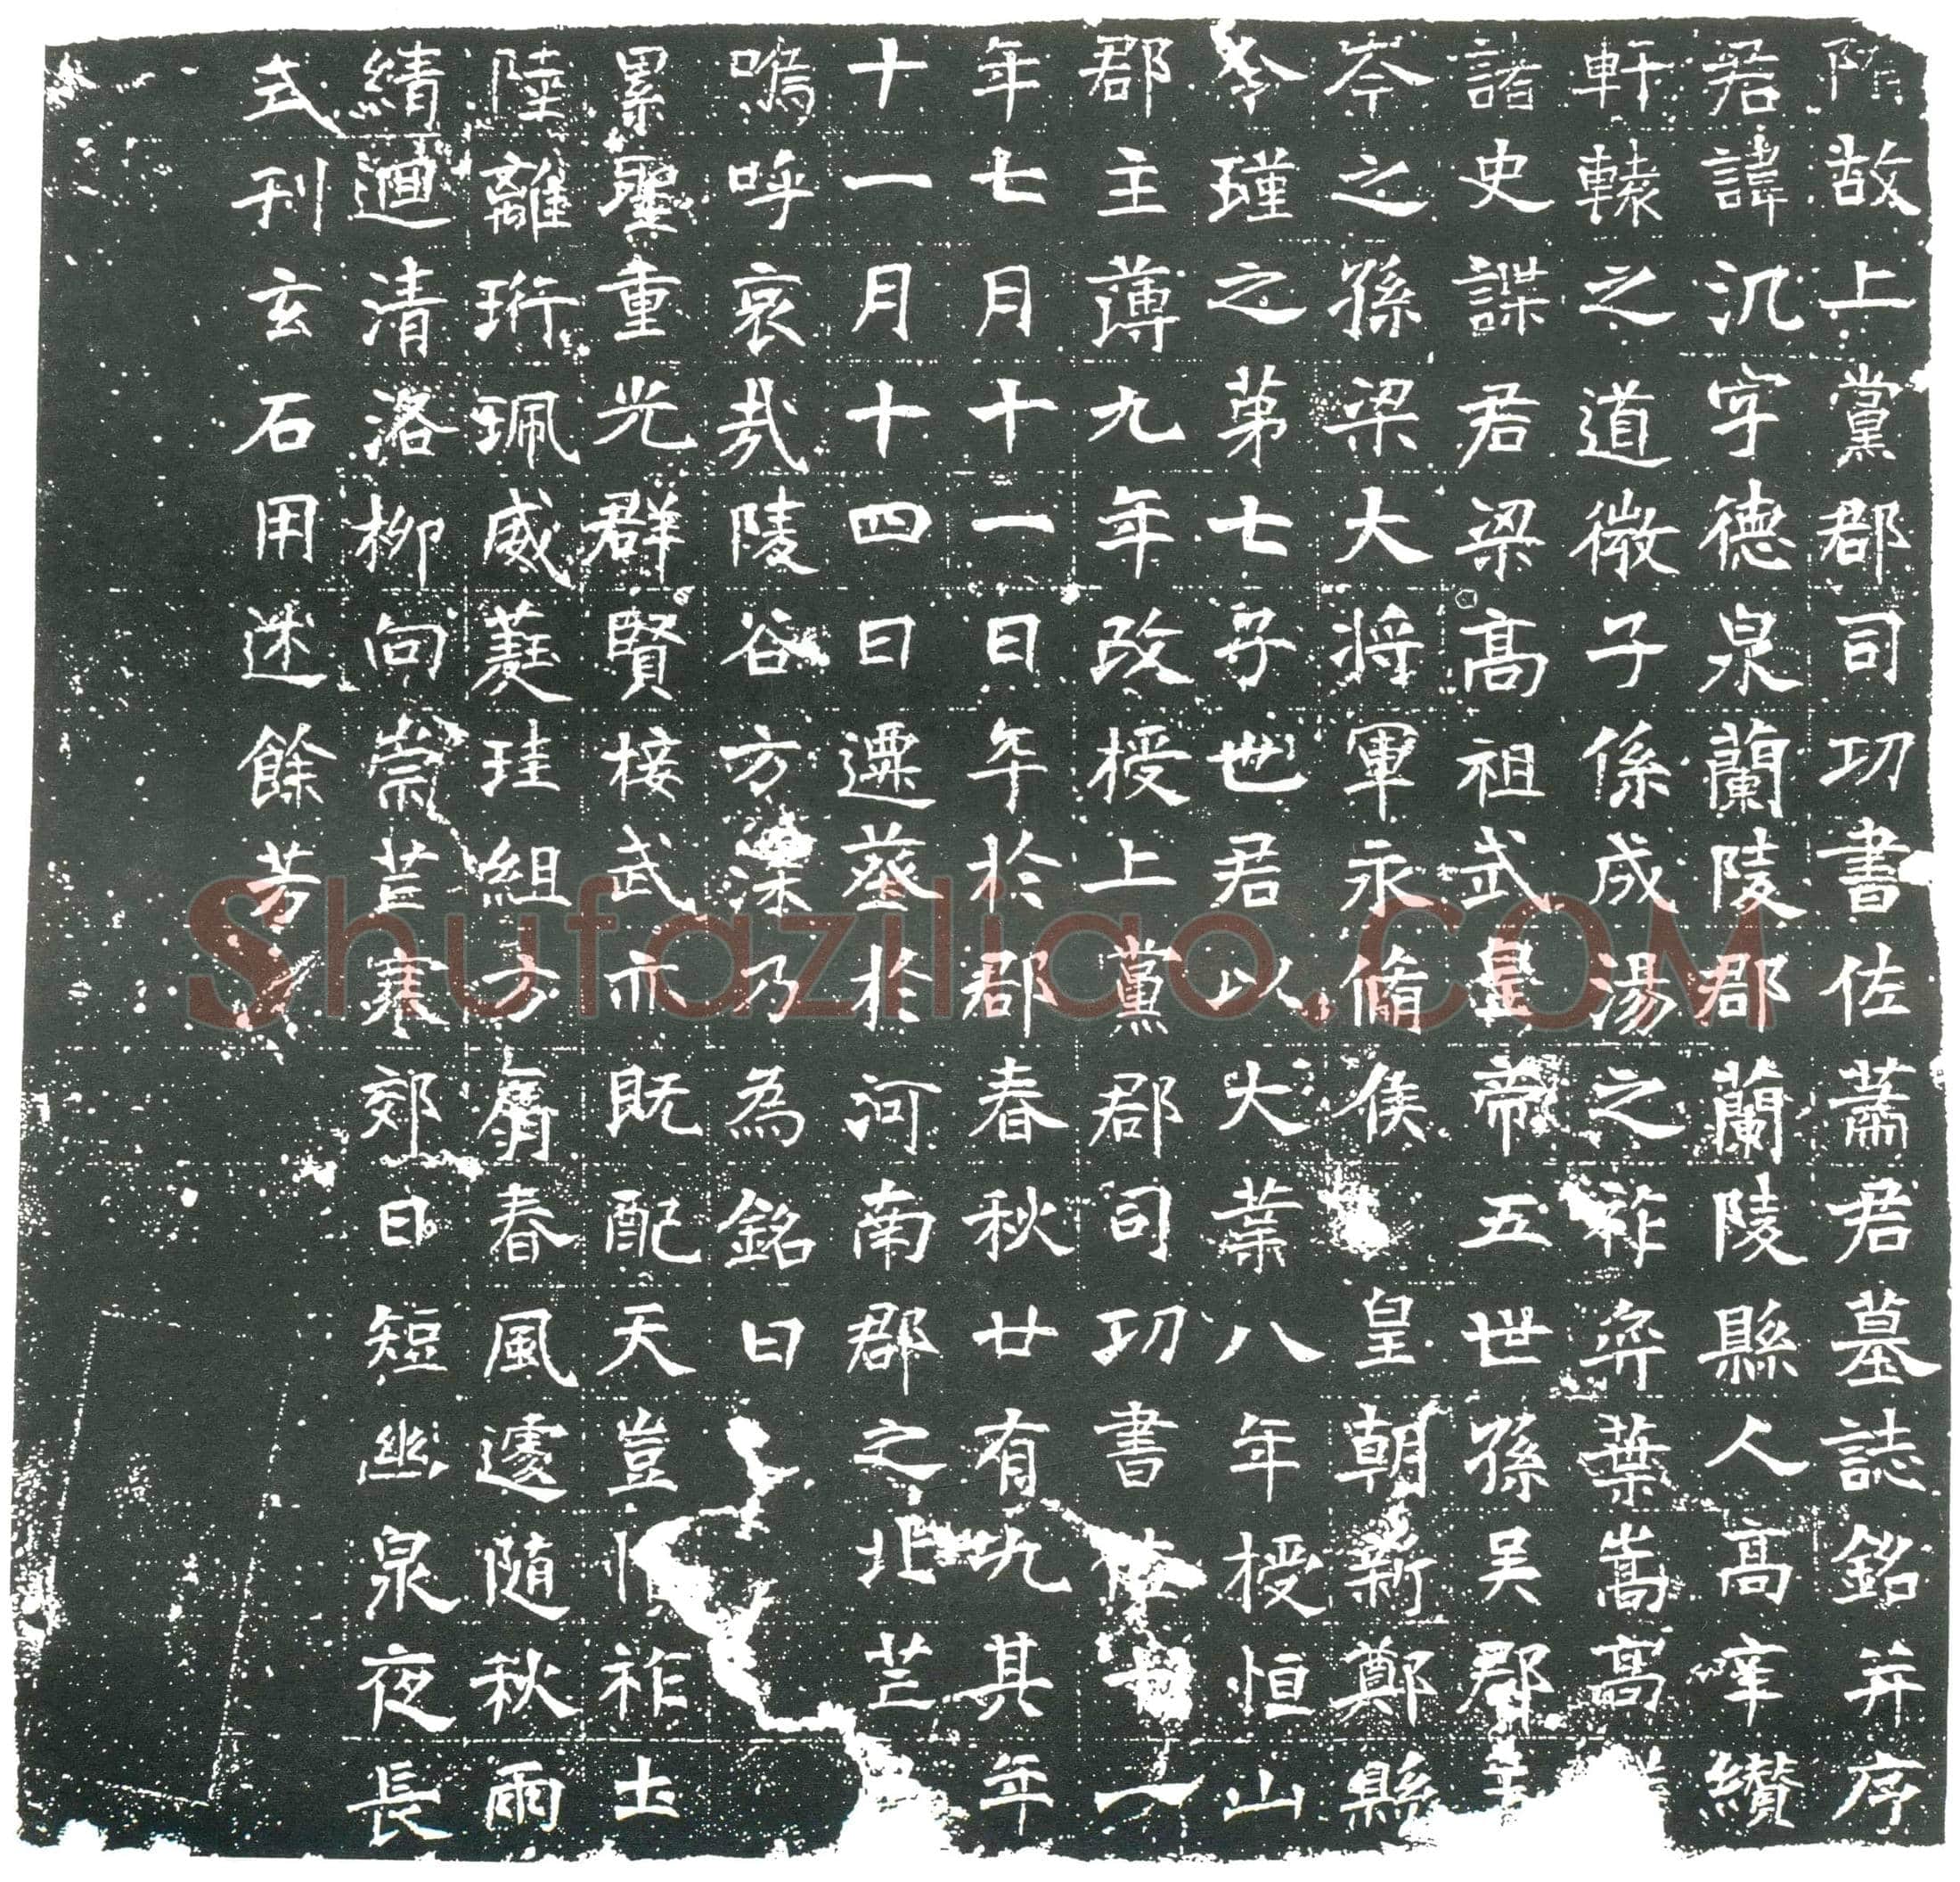 隋故上黨郡司功書佐蕭君墓誌銘并序
君諱汎字德泉蘭陵郡蘭陵縣人高辛纉
軒轅之道微子係成湯之祚弈葉嵩高
諸史諜君梁高祖武皇帝五世孫吴郡王
岑之孫梁大将軍永脩侯皇朝新鄭縣
令瑾之苐七子世君以大業八年授恒山
郡主薄九年改授上黨郡司功書佐一
年七月十一日卒於郡春秋廿有九其年
十一月十四日遷葬於河南郡之北芒
嗚呼哀哉陵谷方深乃為銘曰
累聖重光群賢接武亦既配天豈祚土
陸離珩珮葳蕤珪組方春風遽随秋雨
綪迴清洛柳向崇芒寒郊日短幽泉夜長
式刊玄石用述餘芳
Shufaziliao.COM